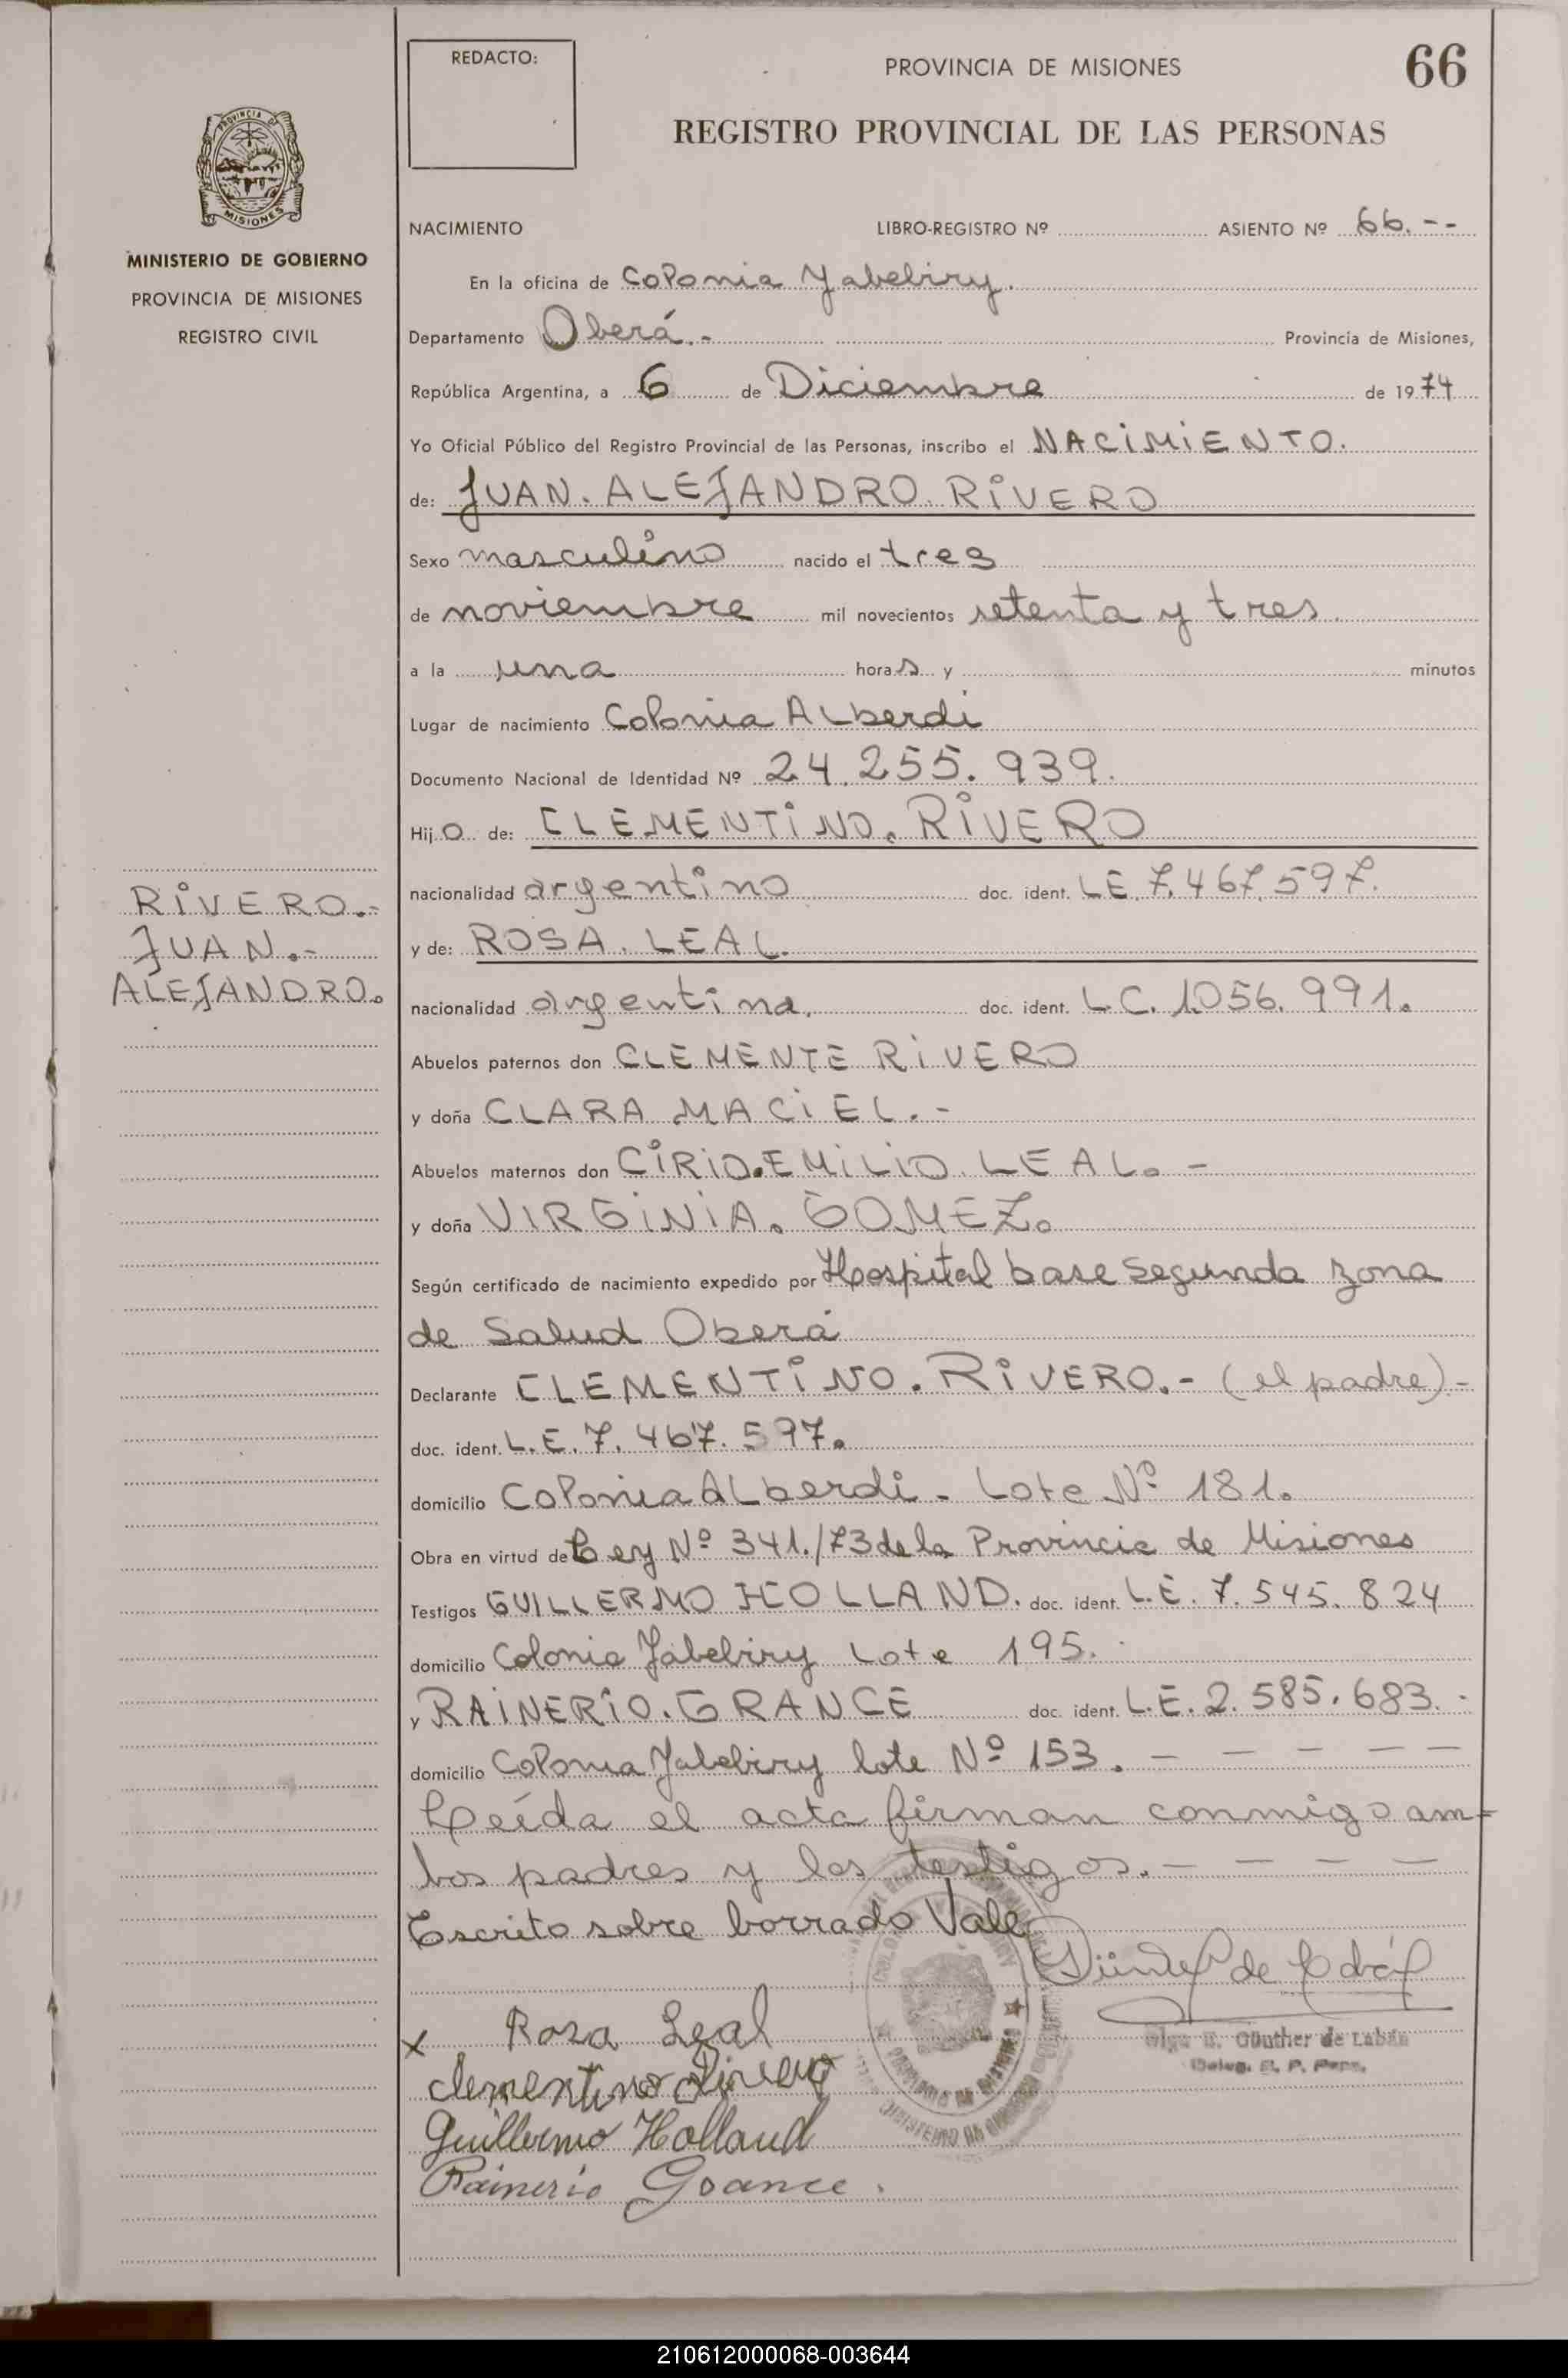 REDACTO:
PROVINCIA DE MISIONES
66
REGISTRO PROVINCIAL DE LAS PERSONAS
PROVINCIA DE
MISIONES
MINISTERIO DE GOBIERNO
PROVINCIA DE MISIONES
REGISTRO CIVIL
NACIMIENTO LIBRO-REGISTRO Nº ASIENTO Nº 66.--
En la oficina de Colonia Yabebiry.
Departamento Oberá.- Provincia de Misiones,
República Argentina, a 6 de Diciembre de 1974
Yo Oficial Público del Registro Provincial de las Personas, inscribo el NACIMIENTO.
de: JUAN. ALEJANDRO. RIVERO
Sexo masculino nacido el tres
de noviembre mil novecientos setenta y tres
a la una horas y minutos
Lugar de nacimiento Colonia ALberdi
Documento Nacional de Identidad Nº 24.255.939.
Hijo de: CLEMENTINO. RIVERO
nacionalidad argentino doc. ident. LE.7.467.597.
y de: ROSA. LEAL.
nacionalidad argentina. doc. ident. L.C. 1.056.991.
RIVERO.-
JUAN.-
ALEJANDRO.
Abuelos paternos don CLEMENTE RIVERO
y doña CLARA MACIEL.-
Abuelos maternos don CIRIO.EMILIO. LEAL. -
y doña VIRGINIA. GOMEZ.
Según certificado de nacimiento expedido por Hospital base Segunda zona
de Salud Oberá
Declarante CLEMENTINO. RIVERO.- (el padre)-
doc. ident. L.E. 7.467.597.
domicilio Colonia ALberdi - Lote Nº 181.
Obra en virtud de Ley Nº 341./73 de la Provincia de Misiones
Testigos GUILLERMO HOLLAND. doc. ident. L.E. 7.545.824
domicilio Colonia Yabebiry Lote 195.
y RAINERIO. GRANCE doc. ident. L.E. 2.585.683.-
domicilio Colonia Yabebiry lote Nº 153. - - - - -
Leída el acta firman conmigo am=
bos padres y los testigos.- - - - -
Escrito sobre borrado Vale
Günther de Labá
x Rosa Leal
Olga E. Günther de Labán
Deleg. R. P. Pers.
PROVINCIA DE MISIONES
Clementino Rivero
Guillermo Holland
Rainerio Grance.
210612000068-003644